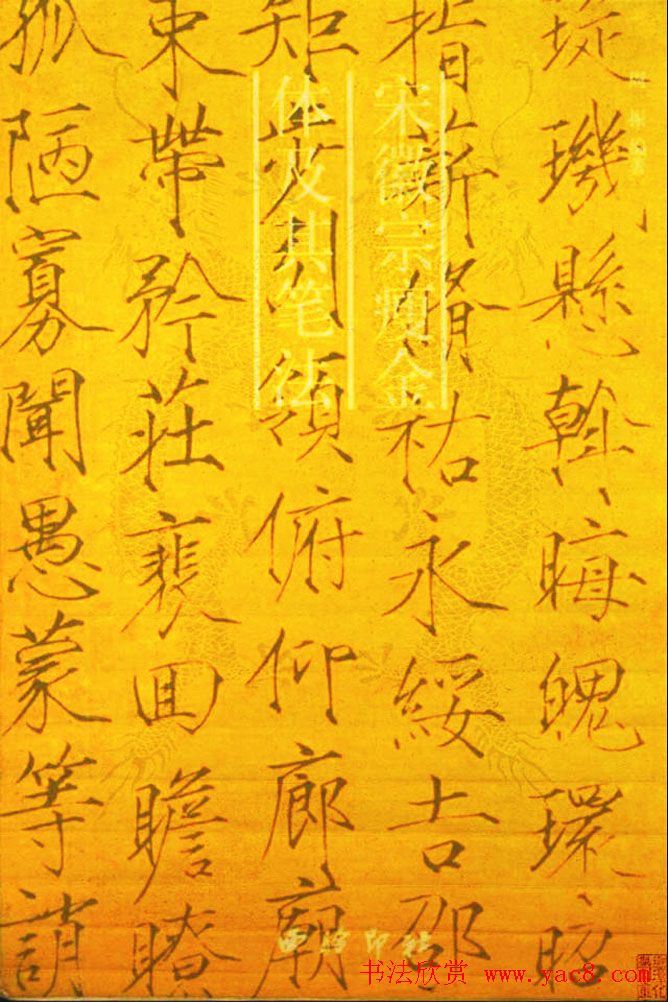 宋徽宗瘦金
体及其笔法
璇璣懸斡晦魄環照
指薪脩祐永綏吉邵
矩步引領俯仰廊廟
束帶矜莊裵回瞻眺
孤陋寡聞愚蒙等誚
西泠印社
书法欣赏 www.yac8.com